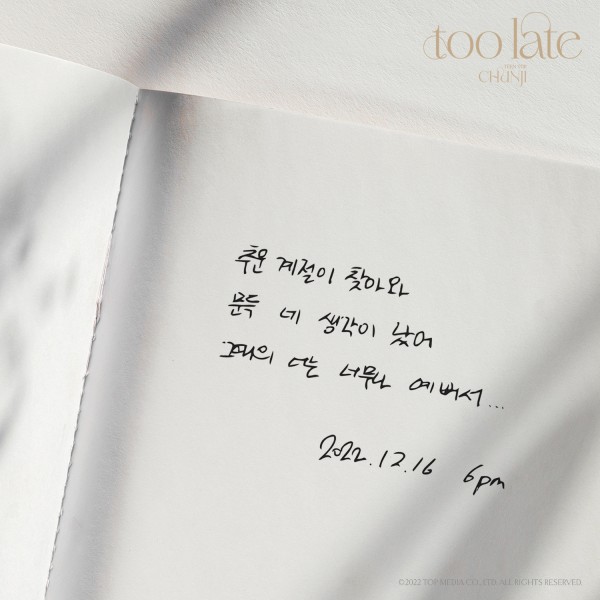 too late
CHUNJI
추운 계절이 찾아와
문득 네 생각이 났어
그때의 너는 너무나 예뻐서...
2022.12.16 6pm
©2022 TOP MEDIA CO., LTD. ALL RIGHTS RESERVED.